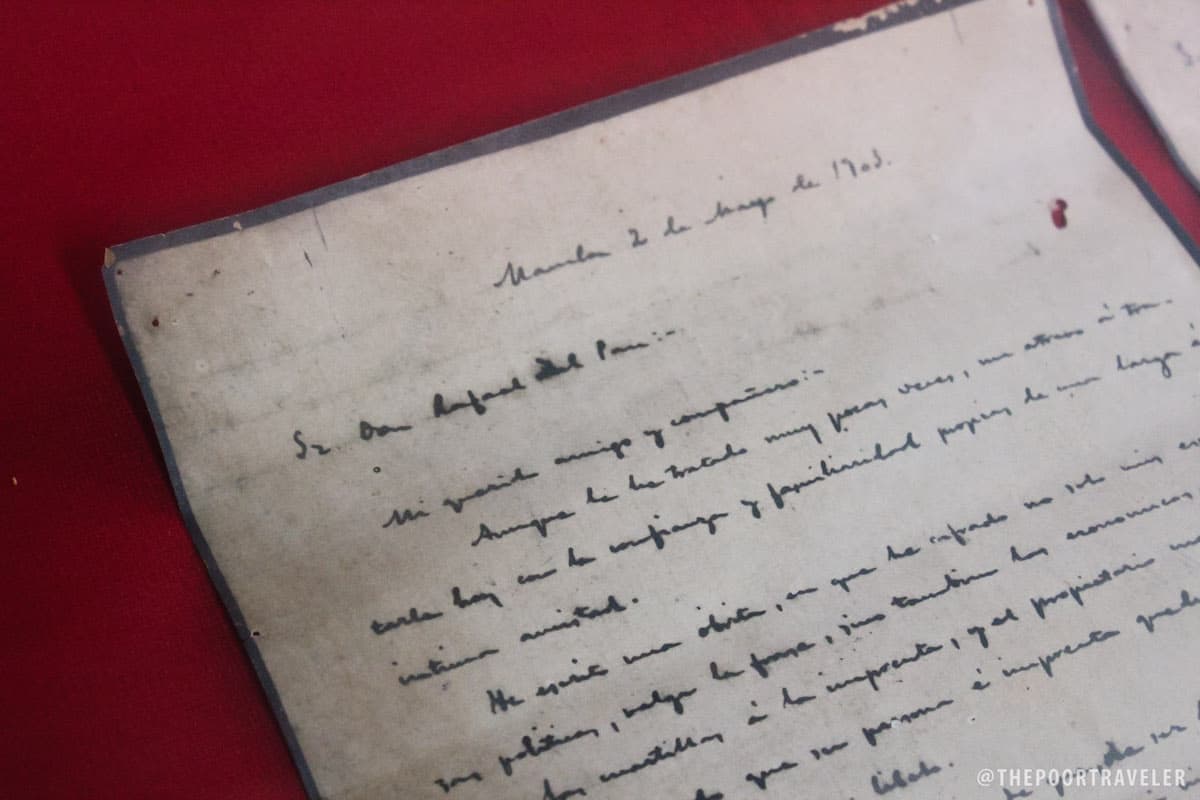 Manila 2 de Mayo de 1903.
Sr Don Rafael Del Pan:-
Mi querido amigo y compañero:-
Aunque le he tratado muy pocas veces, me atrevo á tra-
tarle hoy con la confianza y familiaridad propias de una larga é
intima amistad.
He escrito una obrita, en que he cifrado no solo mis
politicas, valga la frase, sino tambien las economicas
las cuartillas á la imprenta, y el propietario
que su persona é imprenta
de
@THEPOORTRAVELER